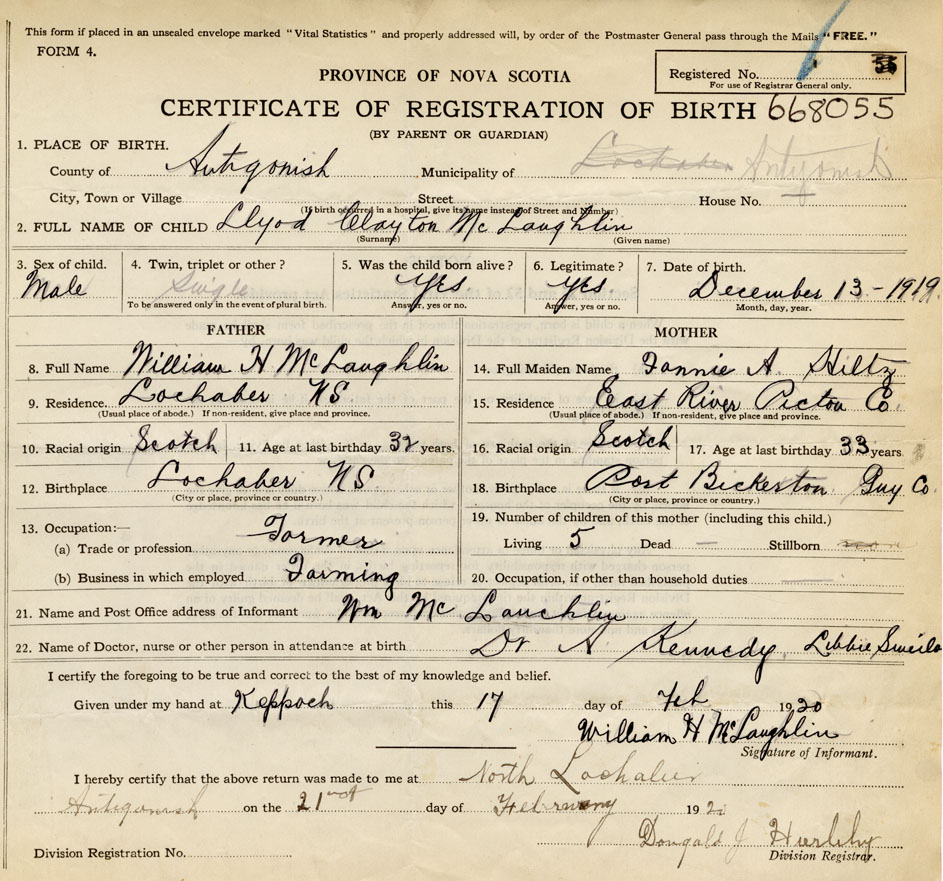 This form if placed in an unsealed envelope marked "Vital Statistics" and properly addressed will, by order of the Postmaster General pass through the Mails "FREE."
FORM 4.
PROVINCE OF NOVA SCOTIA
Registered No.
For use of Registrar General only.
CERTIFICATE OF REGISTRATION OF BIRTH 668055
(BY PARENT OR GUARDIAN)
1. PLACE OF BIRTH.
County of Antigonish Municipality of Lochaber Antigonish
City, Town or Village Street House No.
(If birth occurred in a hospital, give its name instead of Street and Number)
2. FULL NAME OF CHILD Llyod Clayton McLaughlin
(Surname) (Given name)
3. Sex of child. 4. Twin, triplet or other? 5. Was the child born alive? 6. Legitimate? 7. Date of birth.
Male Single Yes Yes December 13-1919.
To be answered only in the event of plural birth. Answer, yes or no. Answer, yes or no. Month, day, year.
FATHER MOTHER
8. Full Name William H McLaughlin 14. Full Maiden Name Fannie A. Hiltz
9. Residence. Lochaber NS 15. Residence East River Pictou Co.
(Usual place of abode.) If non-resident, give place and province. (Usual place of abode.) If non-resident, give place and province.
10. Racial origin Scotch 11. Age at last birthday 32 years. 16. Racial origin Scotch 17. Age at last birthday 33 years
12. Birthplace Lochaber NS 18. Birthplace Port Bickerton Guy Co
(City or place, province or country.) (City or place, province or country.)
13. Occupation:— 19. Number of children of this mother (including this child.)
(a) Trade or profession Farmer Living 5 Dead — Stillborn
(b) Business in which employed Farming 20. Occupation, if other than household duties
21. Name and Post Office address of Informant Wm McLauchlin
22. Name of Doctor, nurse or other person in attendance at birth Dr A Kennedy Libbie
I certify the foregoing to be true and correct to the best of my knowledge and belief.
Given under my hand at Keppoch this 17 day of Feb 1920
William H McLaughlin
Signature of Informant.
I hereby certify that the above return was made to me at North Lochaber
Antigonish on the 21st day of February 192
Dougald J
Division Registration No. Division Registrar.